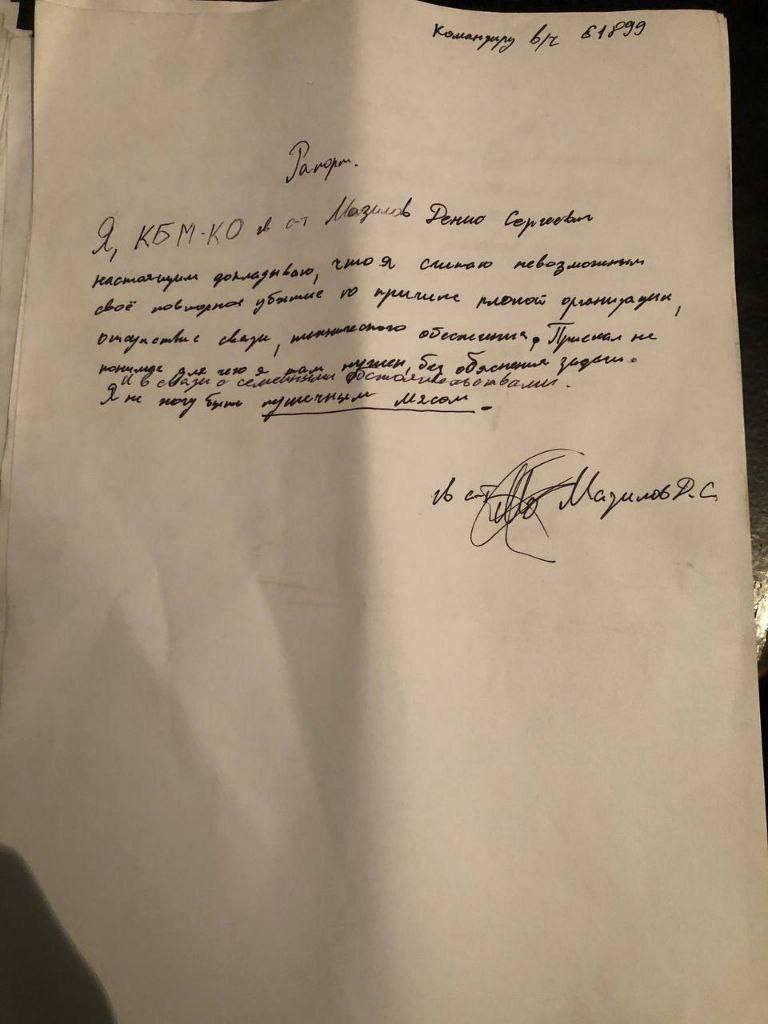 Командиру в/ч 61899
Рапорт.
Я, КБМ-КО гв с-т Мазилов Денис Сергеевич
настоящим докладываю, что я считаю невозможным
своё повторное убытие по причине плохой организации,
отсутствие связи, технического обеспечения. Приехал не
понимая для чего я там нужен, без обяснения задачи.
И в связи с семейными обстоятельствами.
Я не хочу быть пушечным мясом.
гв с-т Мазилов Д.С.